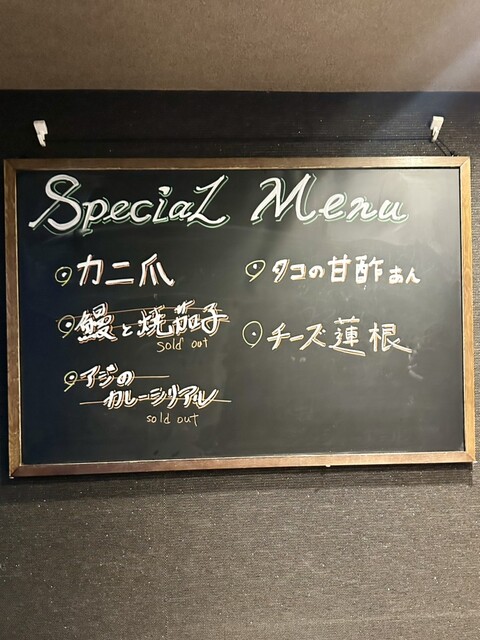 Special Menu
カニ爪
鰻と焼茄子
sold out
アジの
カレーシリアル
sold out
タコの甘酢あん
チーズ蓮根